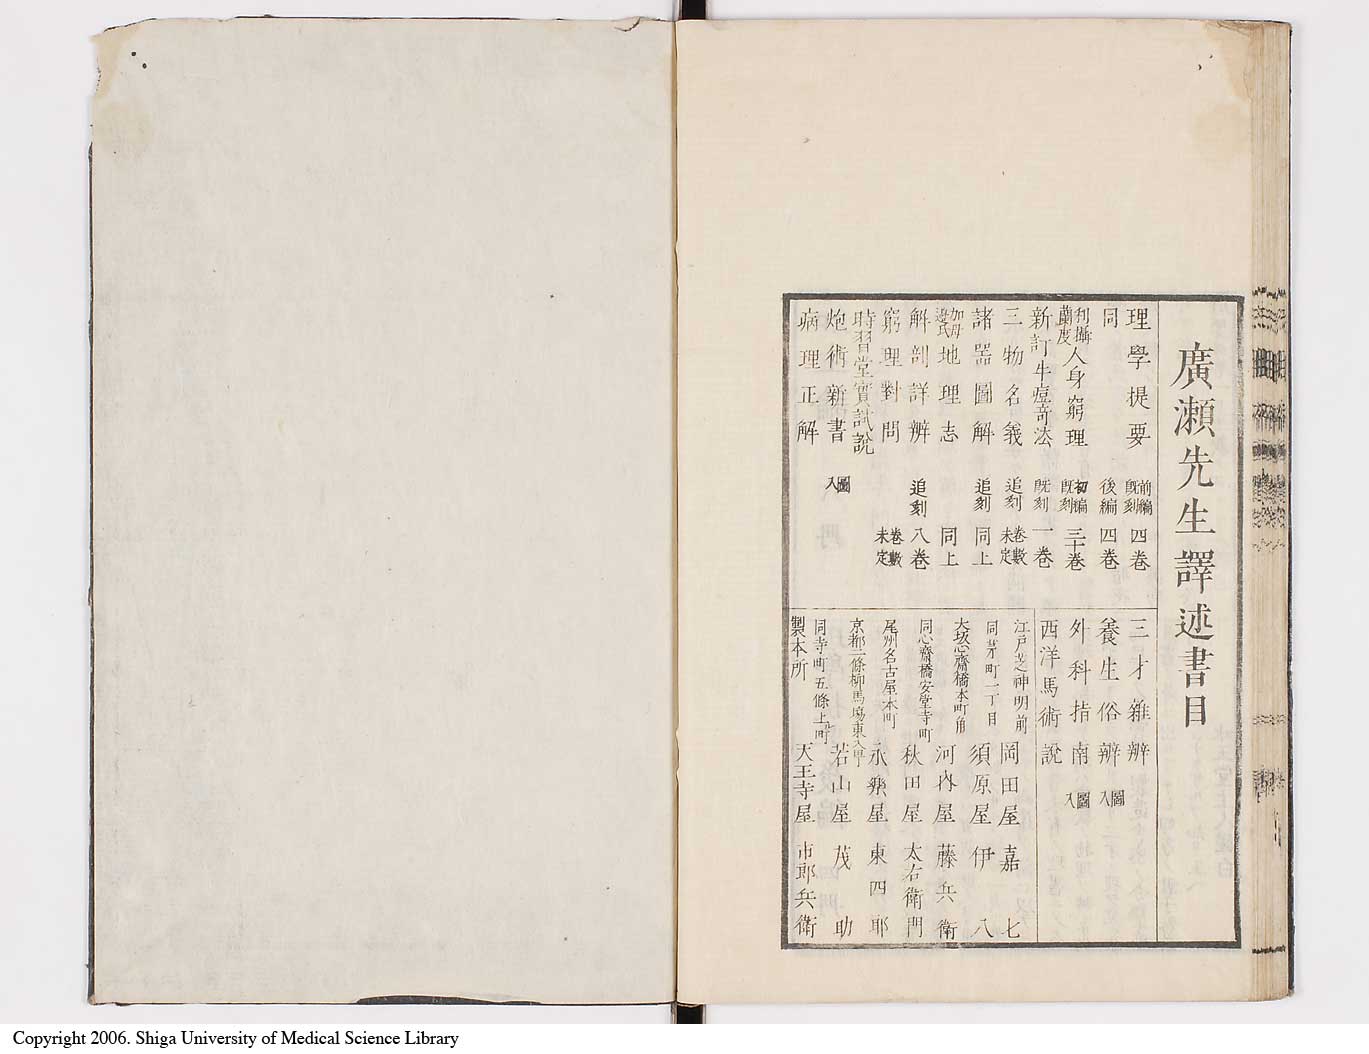 廣瀬先生譯述書目
理學提要 前編既刻 四卷
同 後編 四卷
利攝蘭度人身窮理 初編既刻 三十卷
新訂牛痘奇法 既刻 一卷
三物名義 追刻 卷數未定
諸器圖解 追刻 同上
加母邊氏地理志 同上
解剖詳辨 追刻 八卷
窮理對問 卷數未定
時習堂實試說
炮術新書 圖入
病理正解
三才雜辨
養生俗辨 圖入
外科指南 圖入
西洋馬術說
江戸芝神明前 岡田屋嘉七
同茅町二丁目 須原屋伊八
大坂心齋橋本町角 河內屋藤兵衛
同心齋橋安堂寺町 秋田屋太右衛門
尾州名古屋本町 永樂屋東四郎
京都二條柳馬場東入町 若山屋茂助
同寺町五條上町 天王寺屋市郎兵衛
製本所
Copyright 2006. Shiga University of Medical Science Library